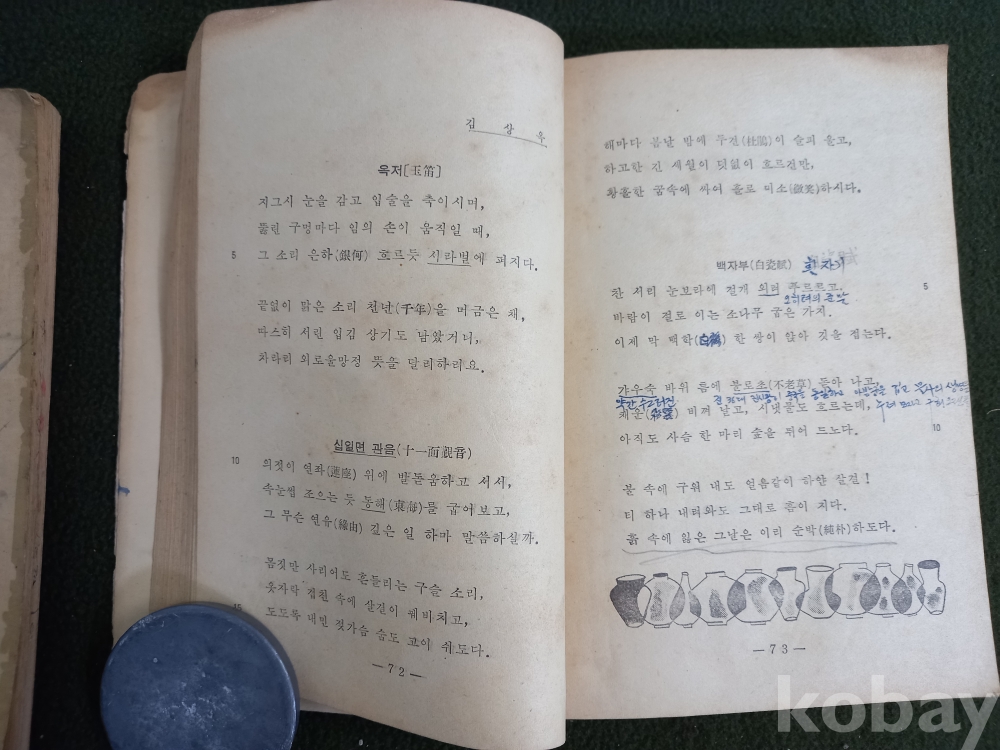 김 상 옥
옥저[玉笛]
지그시 눈을 감고 입술을 축이시며,
뚫린 구멍마다 임의 손이 움직일 때,
5 그 소리 은하(銀河) 흐르듯 서라벌에 퍼지다.
끝없이 맑은 소리 천년(千年)을 머금은 채,
따스히 서린 입김 상기도 남았거니,
차라리 외로울망정 뜻을 달리하리요.
십일면 관음(十一面觀音)
10 의젓이 연좌(蓮座) 위에 발돋움하고 서서,
속눈썹 조으는 듯 동해(東海)를 굽어보고,
그 무슨 연유(緣由) 깊은 일 하마 말씀하실까.
몸짓만 사리어도 흔들리는 구슬 소리,
옷자락 겹친 속에 살결이 꿰비치고,
15 도도록 내민 젖가슴 숨도 고이 쉬도다.
—72—
해마다 봄날 밤에 두견(杜鵑)이 슬피 울고,
하고한 긴 세월이 덧없이 흐르건만,
황홀한 꿈속에 싸여 홀로 미소(微笑)하시다.
백자부(白瓷賦) 흰 자기
찬 서리 눈보라에 절개 외려 푸르르고, 5
오히려의 준말
바람이 절로 이는 소나무 굽은 가지.
이제 막 백학(白鶴) 한 쌍이 앉아 깃을 접는다.
갸우숙 바위 틈에 불로초(不老草) 돋아 나고,
약간 수그러진
채운(彩雲) 비껴 날고, 시냇물도 흐르는데,
10
아직도 사슴 한 마리 숲을 뛰어 드노다.
불 속에 구워 내도 얼음같이 하얀 살결!
티 하나 내려와도 그대로 흠이 지다.
흙 속에 잃은 그날은 이리 순박(純朴)하도다.
—73—
kobay